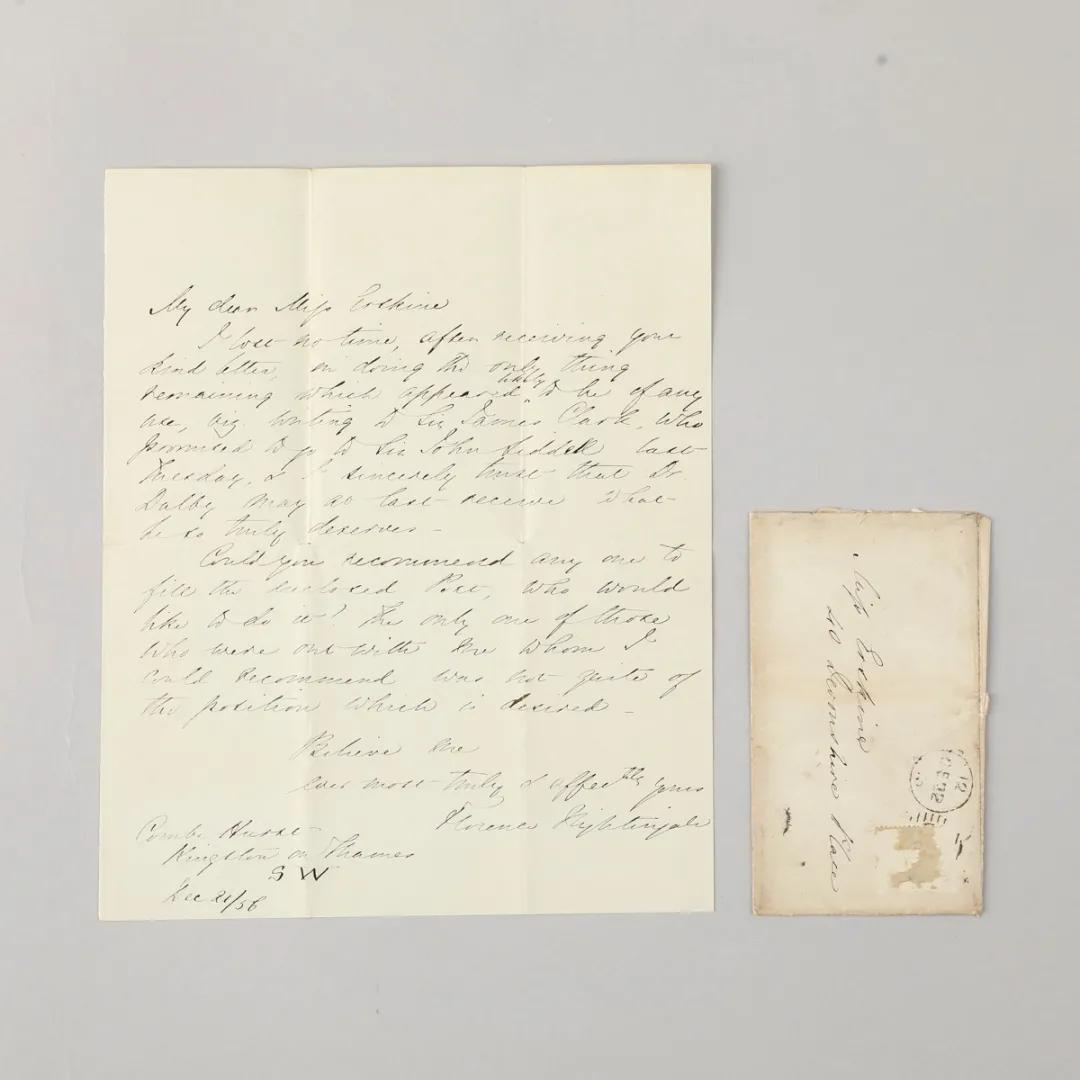 My dear Miss Erskine
I lost no time, after receiving your
kind letter, in doing the only thing
remaining which appeared likely to be of any
use, viz. writing to Sir James Clark, who
promised to go to Sir John Liddell last
Tuesday, & I sincerely trust that Dr.
Dalby may at last receive what
he so truly deserves -
Could you recommend any one to
fill the enclosed Post, who would
like to do it? The only one of those
who were out with me whom I
could recommend was not quite of
the position which is desired -
Believe me
ever most truly & affectly yours
Florence Nightingale
Combe Hurst
Kingston on Thames
SW
Dec 21/56
Miss Erskine
40 Devonshire Place